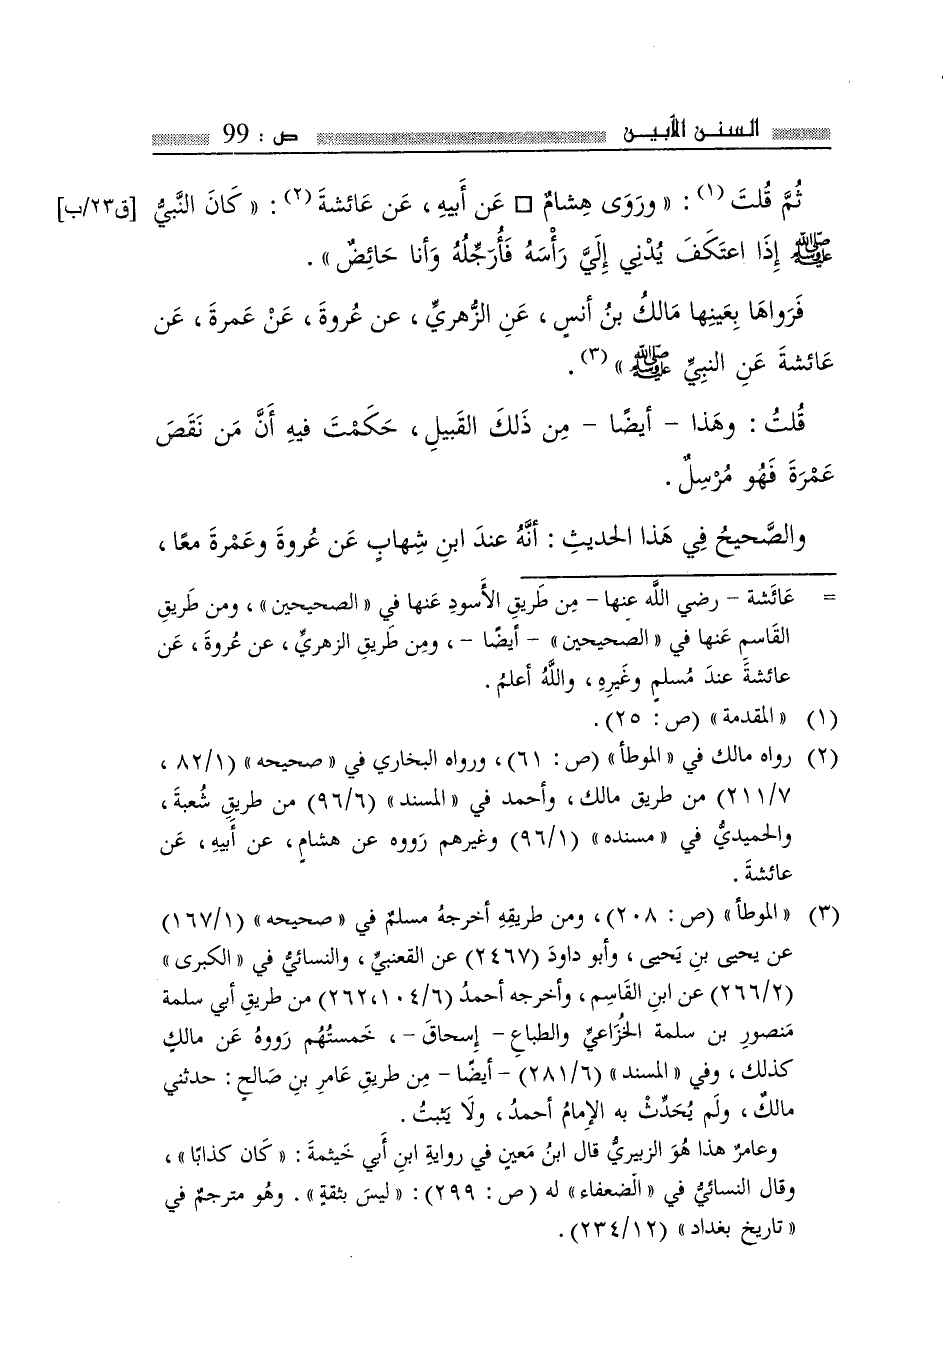 السنن الأبين ص : 99
ثُمَّ قُلتَ (١) : « ورَوَى هِشامٌ □ عَن أَبيهِ ، عَن عَائشةَ (٢) : « كَانَ النَّبيُّ [ق٢٣/ب]
ﷺ إِذَا اعتَكَفَ يُدْنِي إِلَيَّ رَأْسَهُ فَأُرَجِّلُهُ وَأنا حَائِضٌ » .
فَرَواهَا بِعَينِها مَالكُ بنُ أنسٍ ، عَنِ الزُّهريِّ ، عن عُروةَ ، عَنْ عَمرةَ ، عَن
عَائشةَ عَنِ النبِيِّ ﷺ » (٣) .
قُلتُ : وهَذا - أيضًا - مِن ذَلكَ القَبيلِ ، حَكَمْتَ فيهِ أَنَّ مَن نَقَصَ
عَمْرَةَ فَهُو مُرْسِلٌ .
والصَّحيحُ فِي هَذا الحَديثِ : أنَّهُ عندَ ابنِ شِهابٍ عَن عُروةَ وعَمْرةَ معًا ،
= عَائَشة - رضي اللَّه عنها - مِن طَريقِ الأَسودِ عَنها في « الصحيحين » ، ومن طَريقِ
القَاسمِ عَنها في « الصحيحين » - أيضًا - ، ومِن طَريقِ الزهريِّ ، عن عُروةَ ، عَن
عائشةَ عندَ مُسلمٍ وغَيرِهِ ، واللَّهُ أعلمُ .
(١) « المقدمة » (ص : ٢٥) .
(٢) رواه مالك في « الموطأ » (ص : ٦١) ، ورواه البخاري في « صحيحه » (٨٢/١ ،
٢١١/٧) من طريق مالك ، وأحمد في « المسند » (٩٦/٦) من طريقِ شُعبةَ ،
والحميديُّ في « مسنده » (٩٦/١) وغيرهم رَووه عن هشامٍ ، عن أَبيهِ ، عَن
عائشةَ .
(٣) « الموطأ » (ص : ٢٠٨) ، ومن طريقِهِ أخرجهُ مسلمٌ في « صحيحه » (١٦٧/١)
عن يحيى بنِ يَحيى ، وأبو داودَ (٢٤٦٧) عن القعنبيِّ ، والنسائيُّ في « الكبرى »
(٢٦٦/٢) عن ابنِ القَاسِم ، وأخرجه أحمدُ (١٠٤/٦ ،٢٦٢) من طريقِ أبي سلمة
مَنصورِ بن سلمة الخُزَاعيِّ والطباعِ - إِسحاقَ - ، خَمستُهُم رَووهُ عَن مالكٍ
كذلكَ ، وفي « المسند » (٢٨١/٦) - أيضًا - مِن طريقِ عَامرِ بنِ صَالحٍ : حدثني
مالكٌ ، ولَم يُحَدِّثْ به الإمامُ أحمدُ ، ولَا يَثبتُ .
وعامرٌ هذا هُوَ الزبيريُّ قال ابنُ مَعينٍ في روايةِ ابنِ أَبي خَيثمةَ : « كَان كذابًا » ،
وقال النسائيُّ في « الضعفاء » له (ص : ٢٩٩) : « ليسَ بثقةٍ » . وهُو مترجمٌ في
« تاريخ بغداد » (٢٣٤/١٢) .